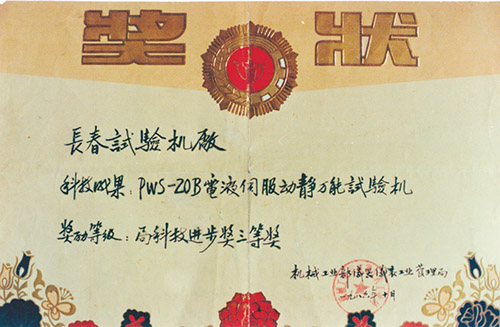 奖状
長春試驗机廠
科技成果：PWS-20B電液伺服动静万能試驗机
奖励等级：局科技进步奖三等奖
机械工业部儀器儀表工业管理局
一九八六年十月